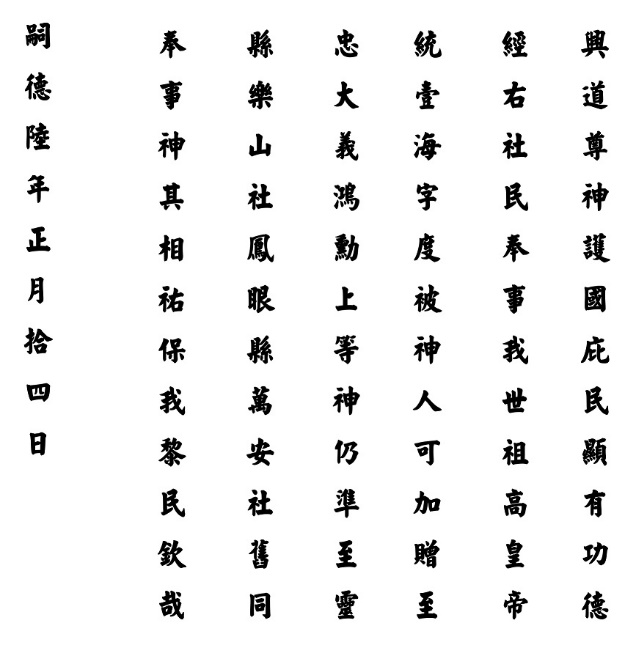 興道尊神護國庇民顯有功德
經右社民奉事我世祖高皇帝
統壹海字度被神人可加贈至
忠大義鴻勳上等神仍準至靈
縣樂山社鳳眼縣萬安社舊同
奉事神其相祐保我黎民欽哉
嗣德陸年正月拾四日